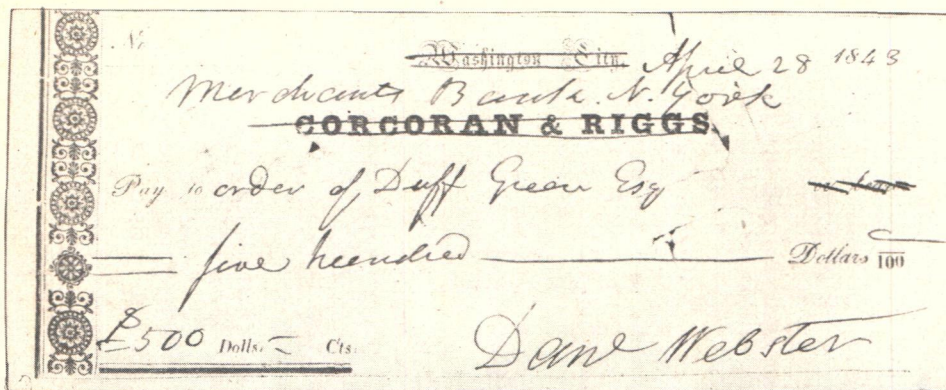 No
Washington City, April 28 1843
Merchants Bank. N. York
CORCORAN & RIGGS
Pay to order of Duff Green Esq or bearer
five hundred Dollars /100
$500 Dolls. Cts.
Danl Webster